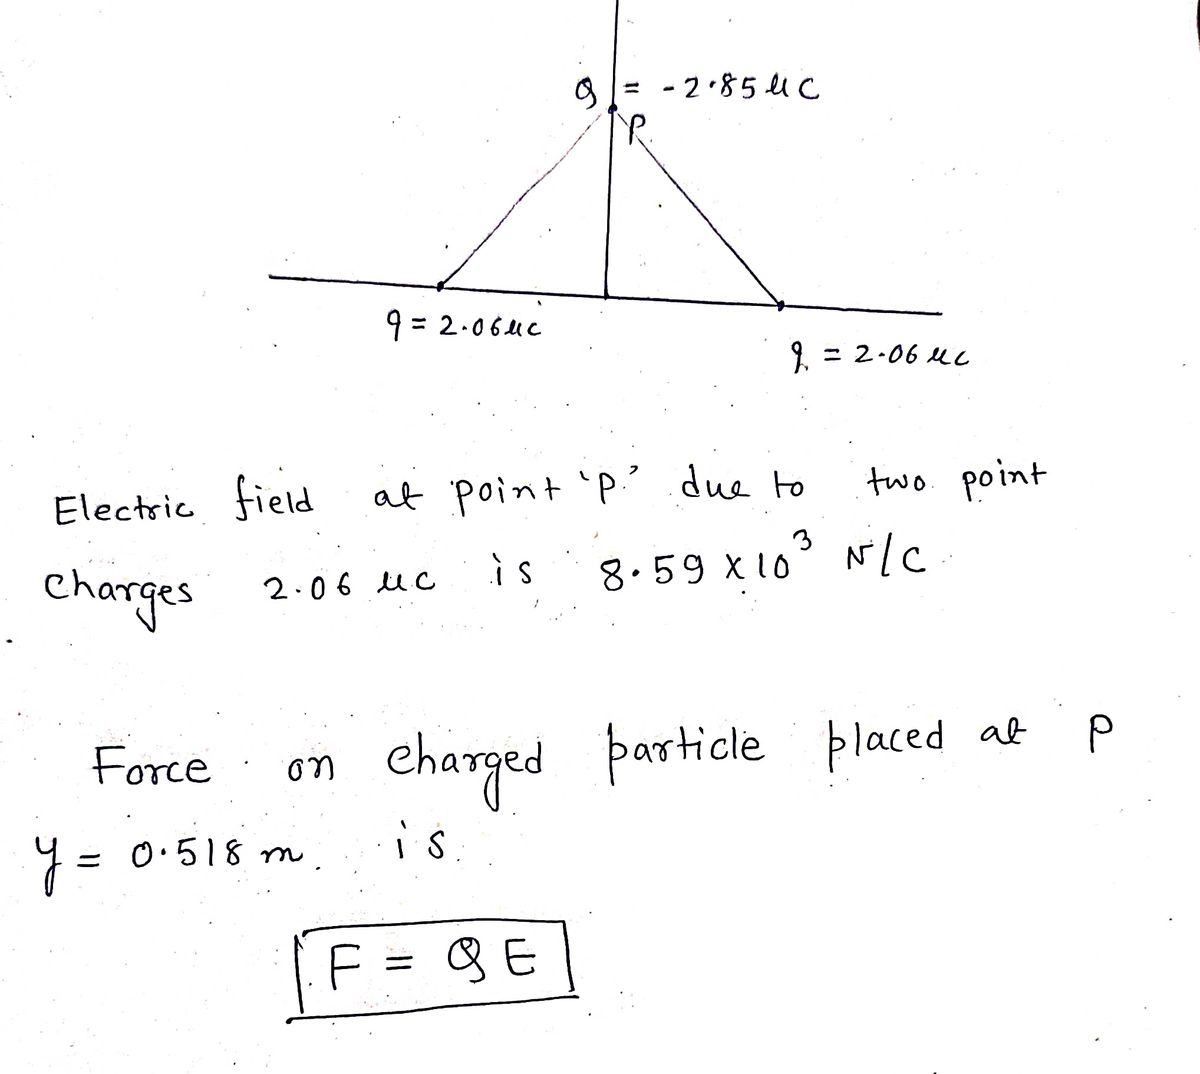 Q = - 2.85 μC
P
q = 2.06 μC
q = 2.06 μC
Electric field at point 'p' due to two point
Charges 2.06 μC is 8.59 × 10³ N/C
Force on charged particle placed at P
y = 0.518 m. is
F = QE